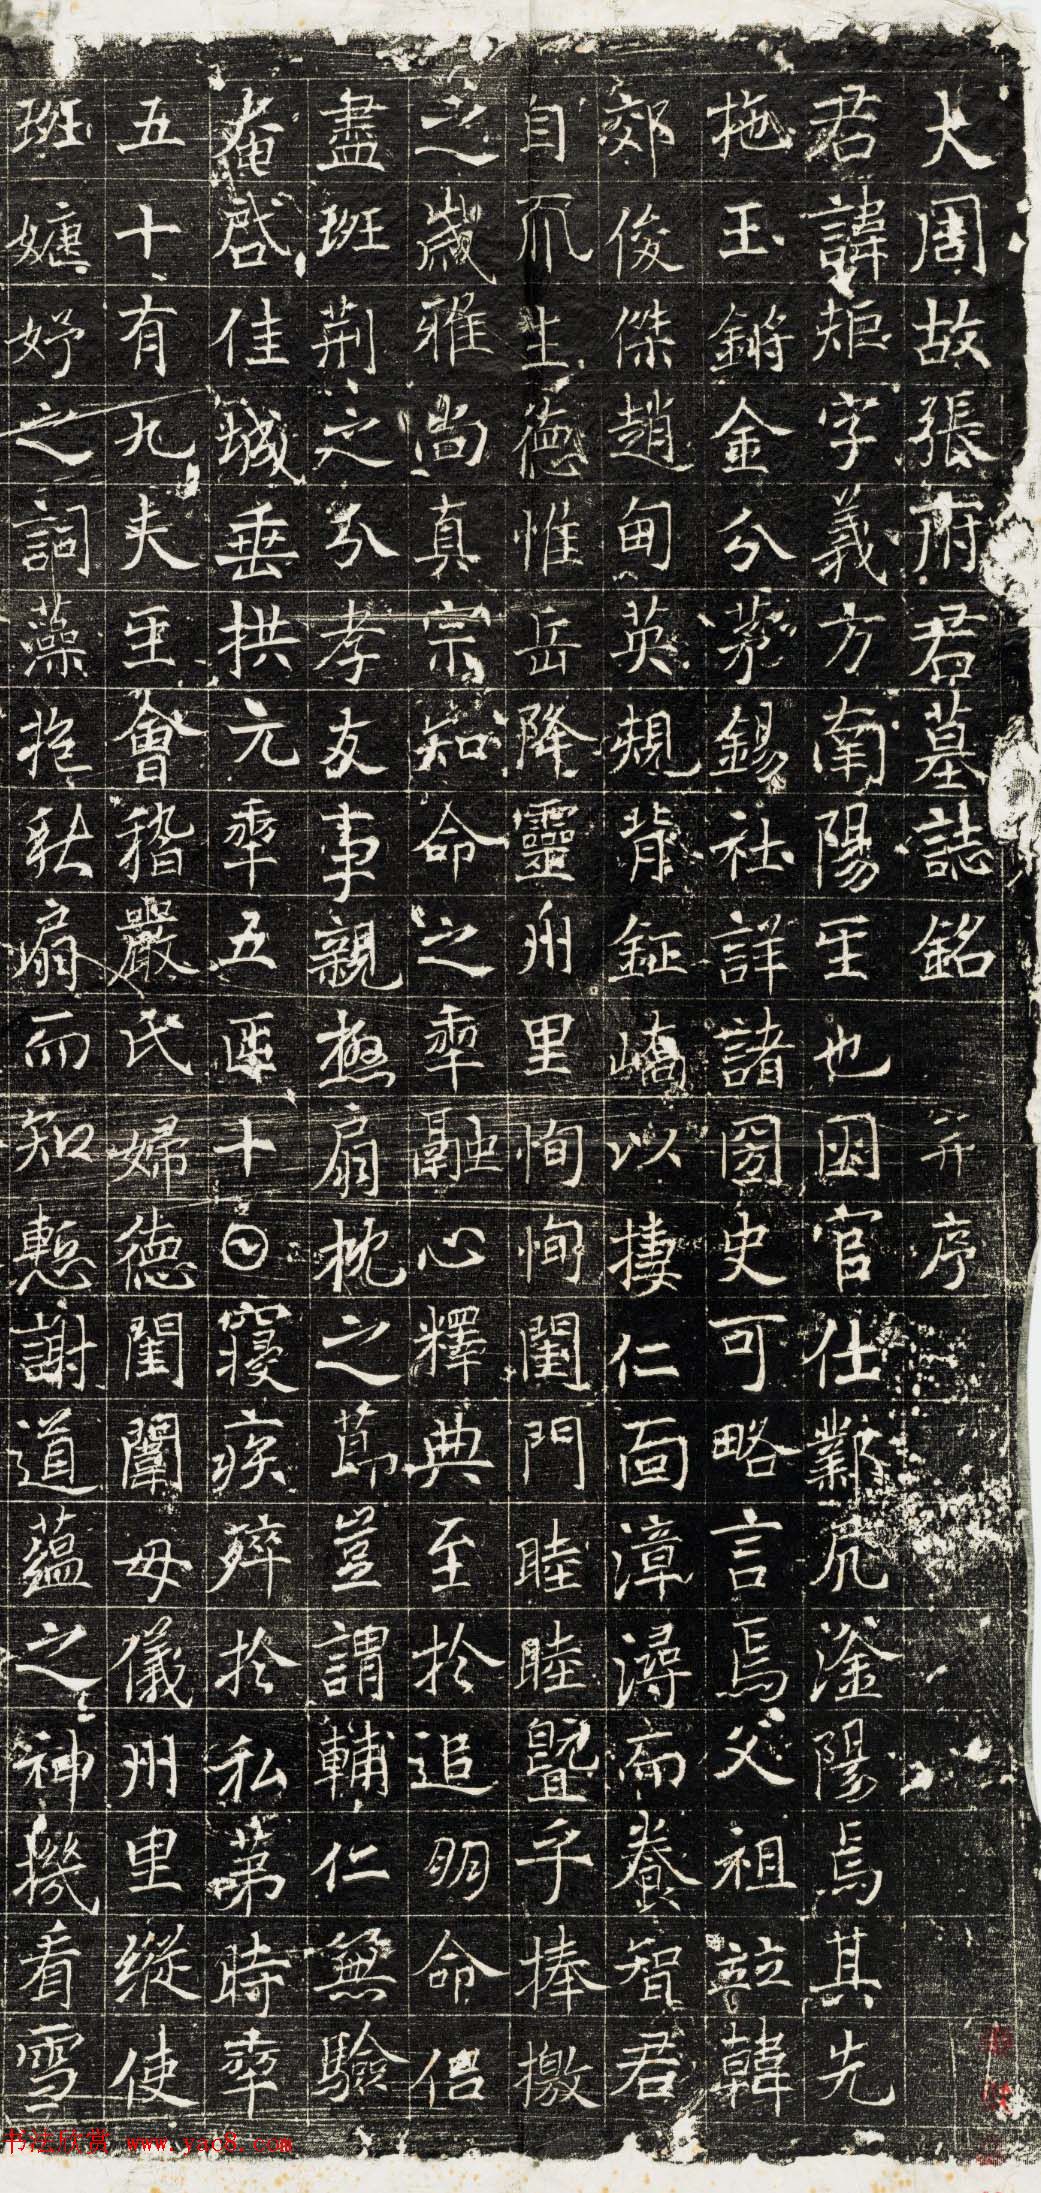 大周故張府君墓誌銘并序
君諱矩字義方南陽𡈼也因官仕鄴凥滏陽焉其先
拖玉鏘金分茅錫社詳諸圖史可略言焉父祖竝韓
郊俊傑趙甸英規背鉦嶠以捿仁面漳潯而養智君
自𠑺生德惟岳降靈州里恂恂閨門睦睦暨乎捧檄
之歲雅尚真宗知命之𠡦融心釋典至於追朋命侣
盡班荊之交孝友事親極扇枕之莭豈謂輔仁無驗
奄啓佳城垂拱元𠡦五匥十𡆠寝疾殞於私第時𠡦
五十有九夫𡈼會稽嚴氏婦德閨闈母儀州里縱使
班婕妤之詞藻抱秋扇而知慙謝道蘊之神機看雪
书法欣赏 www.yac8.com